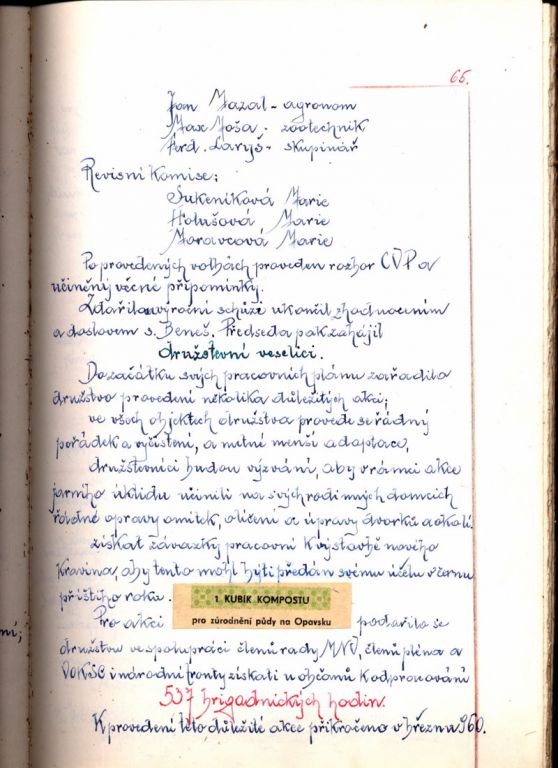 65.
Jan Mazal - agronom
Max Moša - zootechnik
Ferd. Laryš - skupinář
Revisní komise:
Sukeníková Marie
Holušová Marie
Moravcová Marie
Po provedených volbách proveden rozbor CVP a
učiněny věcné připomínky.
Zdařilou výroční schůzi ukončil zhodnocením
a doslovem s. Beneš. Předseda pak zahájil
družstevní veselici.
Do začátku svých pracovních plánu zařadilo
družstvo provedení několika důležitých akcí;
ve všech objektech družstva provede se řádný
pořádek a vyčistění, a nutné menší adaptace,
družstevníci budou vyzváni, aby v rámci akce
jarního úklidu učinili na svých rodinných domcích
řádné opravy omítek, oličení a úpravy dvorků a okolí.
získat závazky pracovní k výstavbě nového
kravína, aby tento mohl býti předán svému účelu v černu
příštího roku.
1 KUBÍK KOMPOSTU
pro zúrodnění půdy na Opavsku
Pro akci podařilo se
družstvu ve spolupráci členů rady MNV, členů pléna a
VOKSČ i národní fronty získati u občanů k odpracování
537 brigadnických hodin.
K provedení této důležité akce přikročeno v březnu 960.